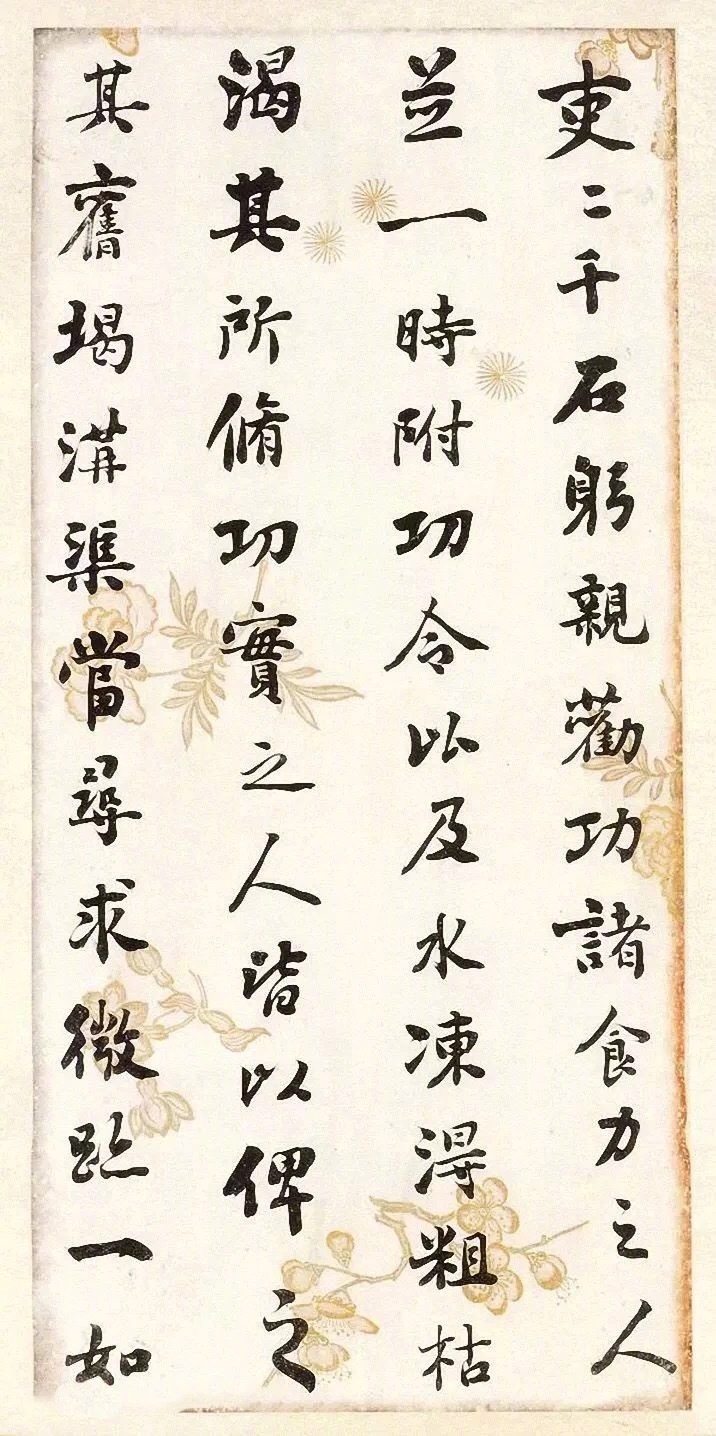 吏二千石躬親勸功諸食力之人
並一時附功令以及水凍淂粗枯
渴其所脩功實之人皆以俾之
其舊堨溝渠當尋求微跡一如